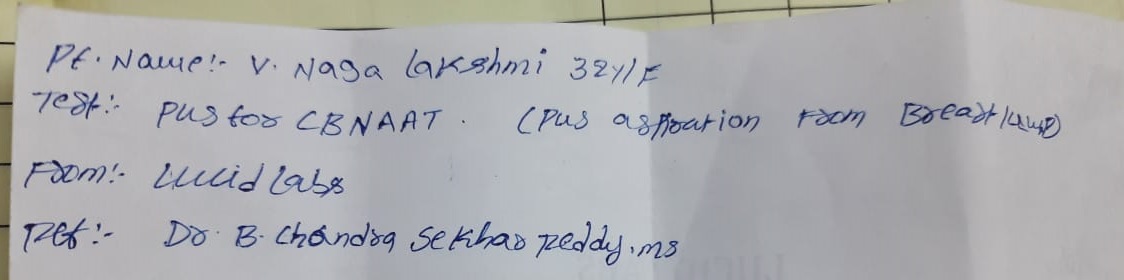 Pt. Name:- V. Naga lakshmi 32y/F
Test:- Pus for CBNAAT. (Pus aspiration From Breast lump)
From:- Lucid Labs
Ref:- Dr. B. Chandra Sekhar Reddy. MS